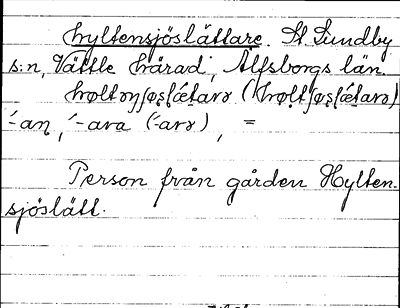 hyltensjöslättare. St. Lundby
s:n, Vättle härad, Älfsborgs län.
-an, -ara (-arɤ), =
Person från gården Hylten-
sjöslätt.